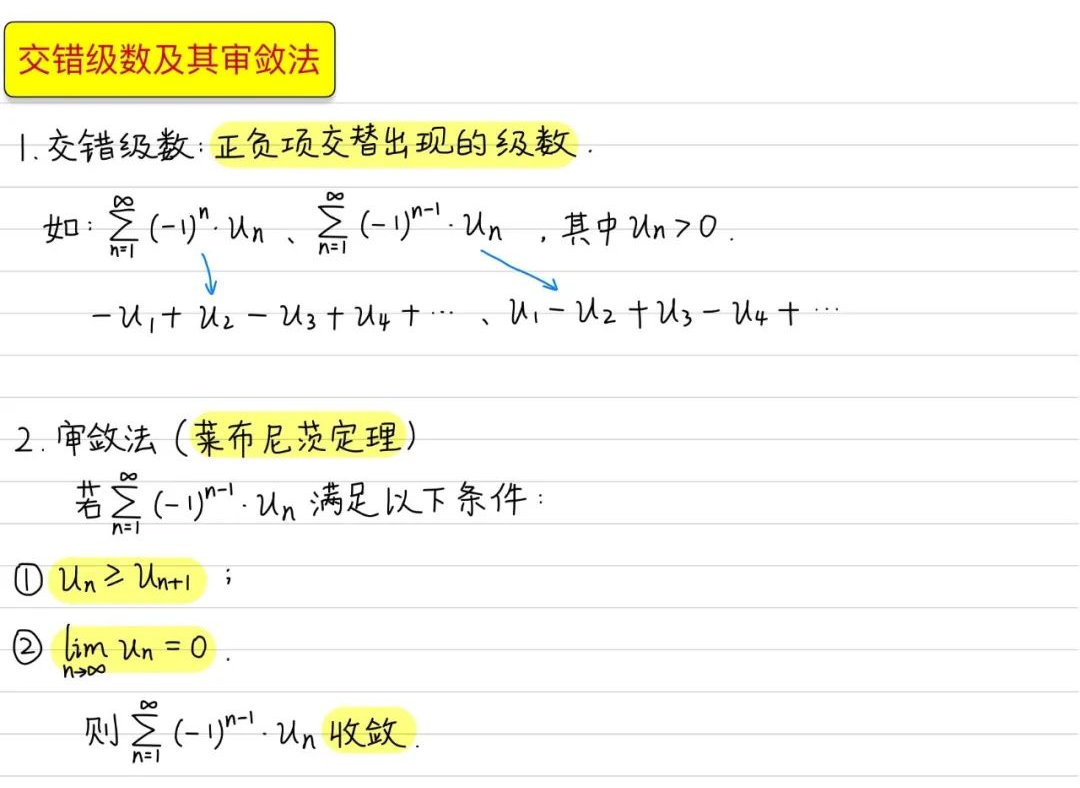 交错级数及其审敛法
1. 交错级数: 正负项交替出现的级数.
如: ∑_{n=1}^{∞} (-1)^n · u_n 、 ∑_{n=1}^{∞} (-1)^{n-1} · u_n , 其中 u_n > 0 .
-u_1 + u_2 - u_3 + u_4 + ⋯ 、 u_1 - u_2 + u_3 - u_4 + ⋯
2. 审敛法 (莱布尼茨定理)
若 ∑_{n=1}^{∞} (-1)^{n-1} · u_n 满足以下条件:
① u_n ≥ u_{n+1} ;
② lim_{n→∞} u_n = 0 .
则 ∑_{n=1}^{∞} (-1)^{n-1} · u_n 收敛.